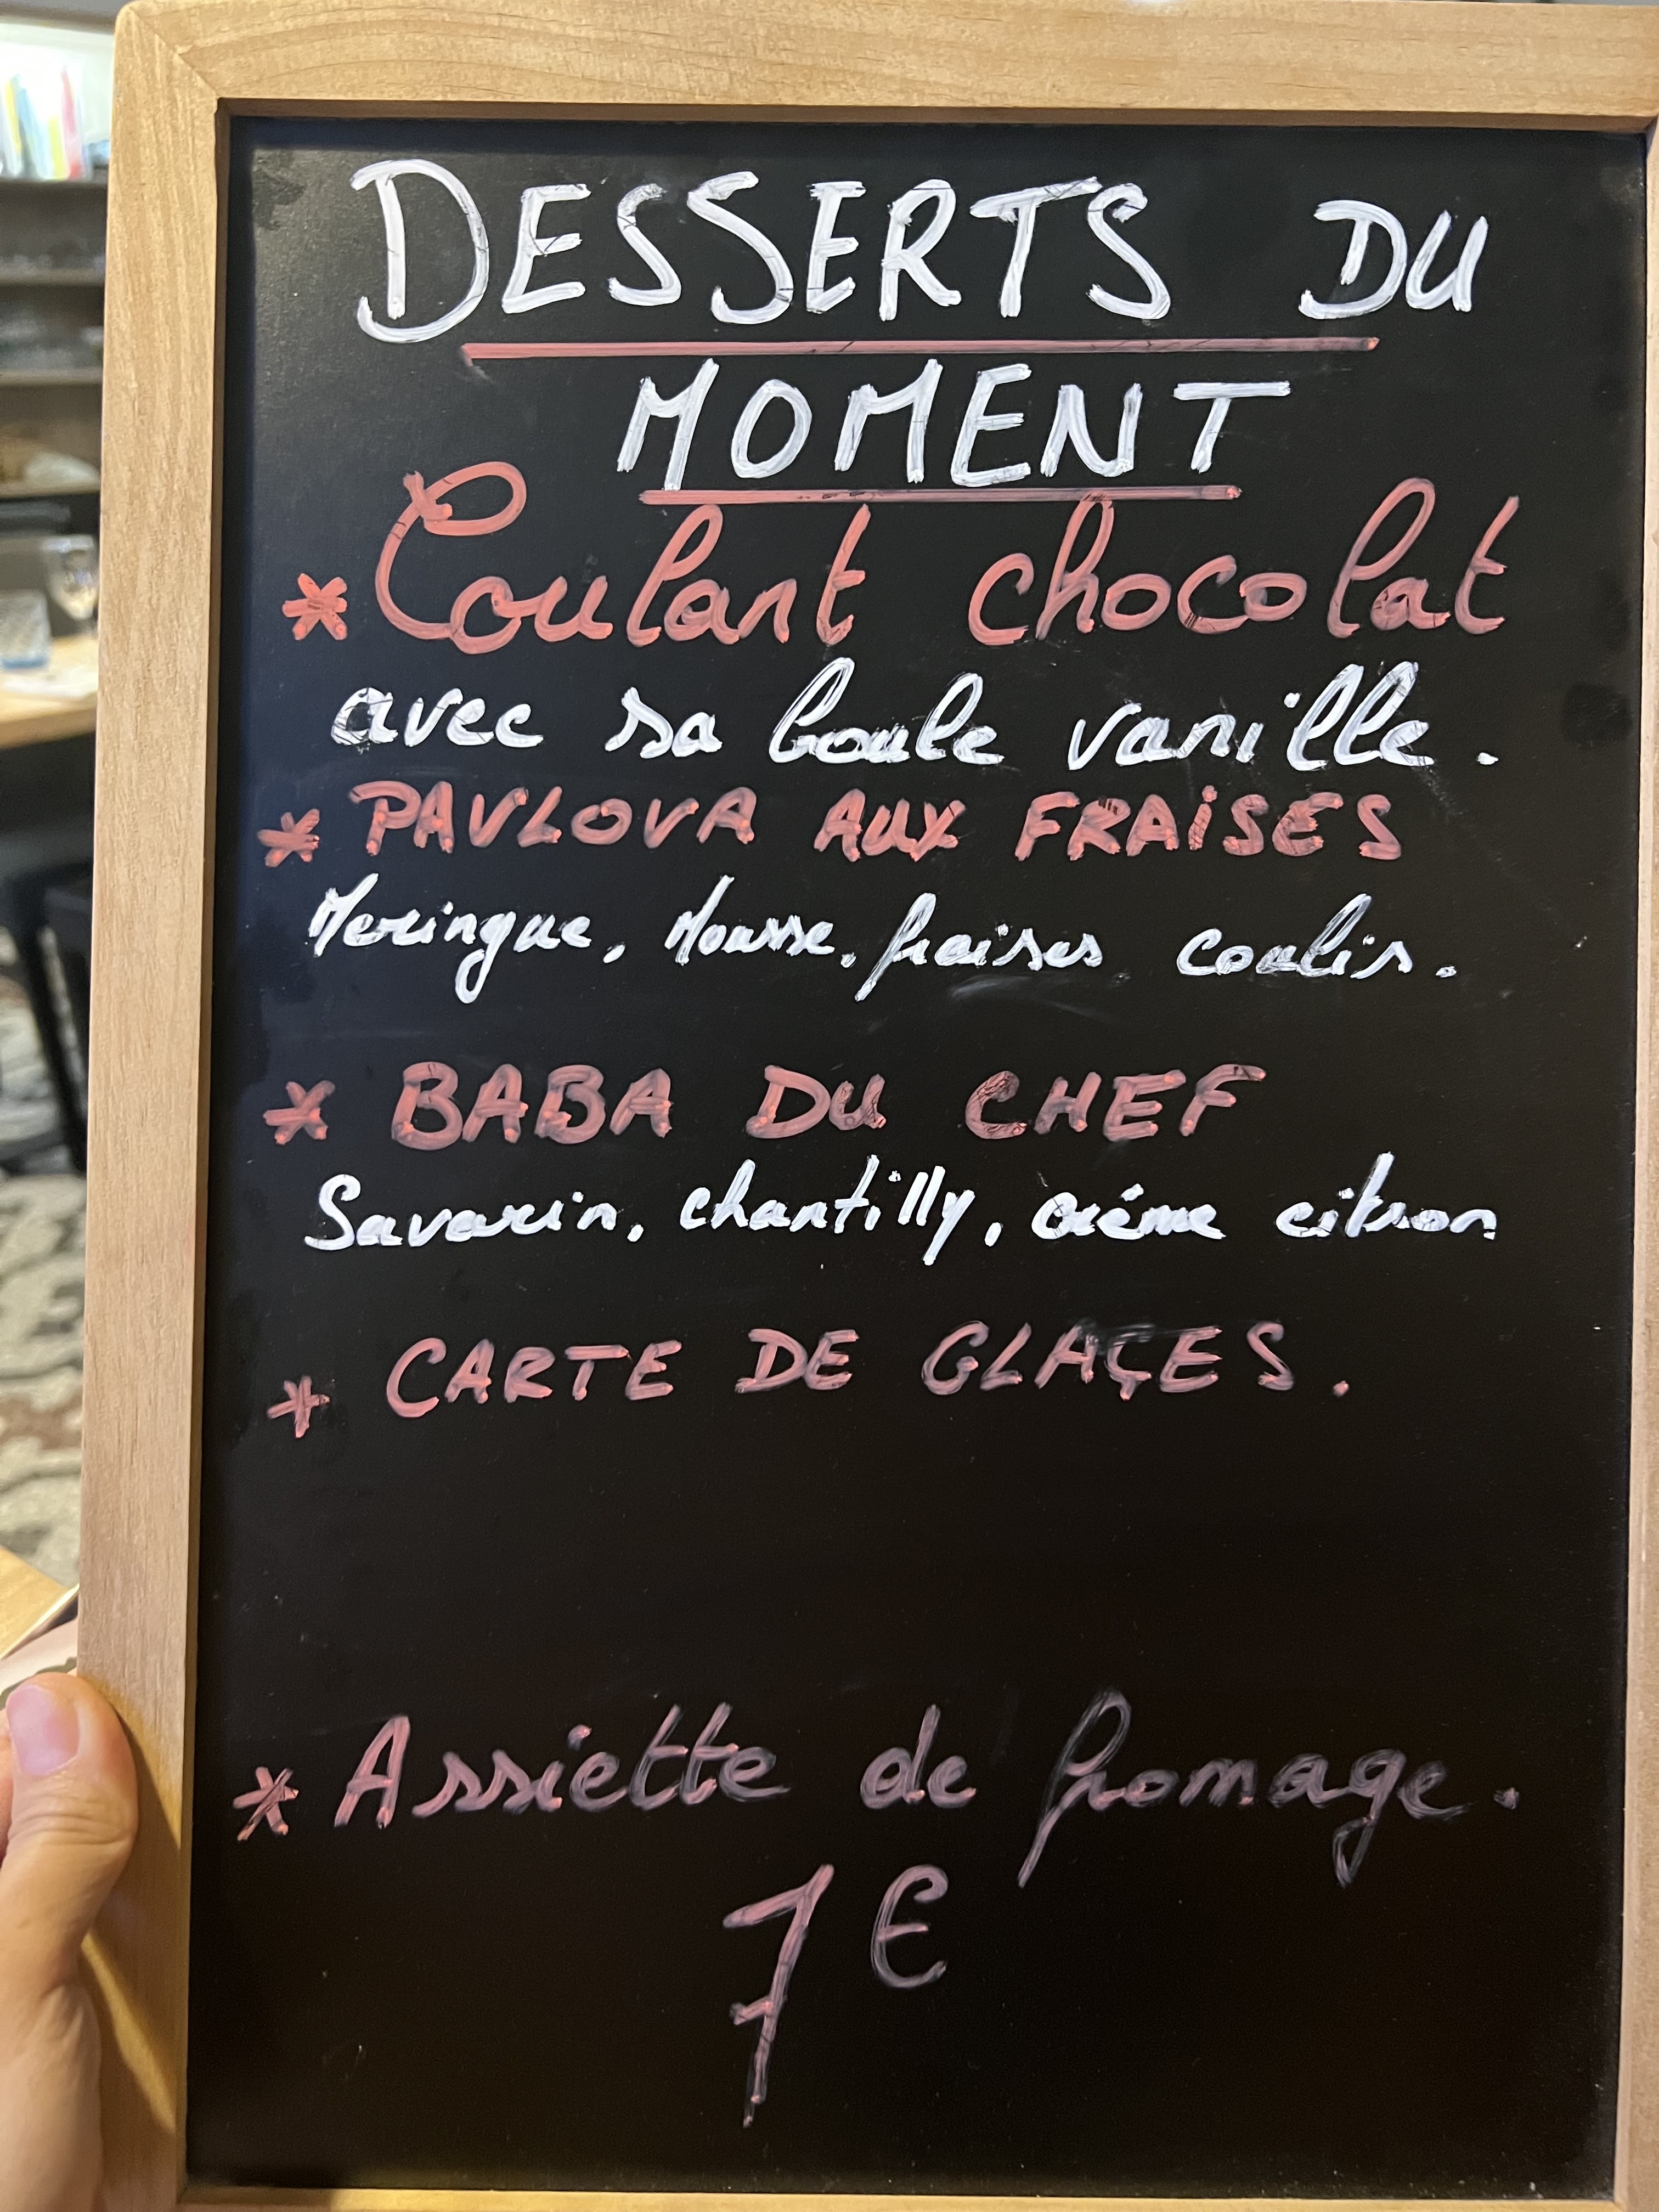 DESSERTS DU
MOMENT
* Coulant chocolat
avec sa boule vanille.
* PAVLOVA AUX FRAISES
Meringue, Mousse, fraises coulis.
* BABA DU CHEF
Savarin, chantilly, créme citron
* CARTE DE GLAÇES.
* Assiette de fromage.
7 €